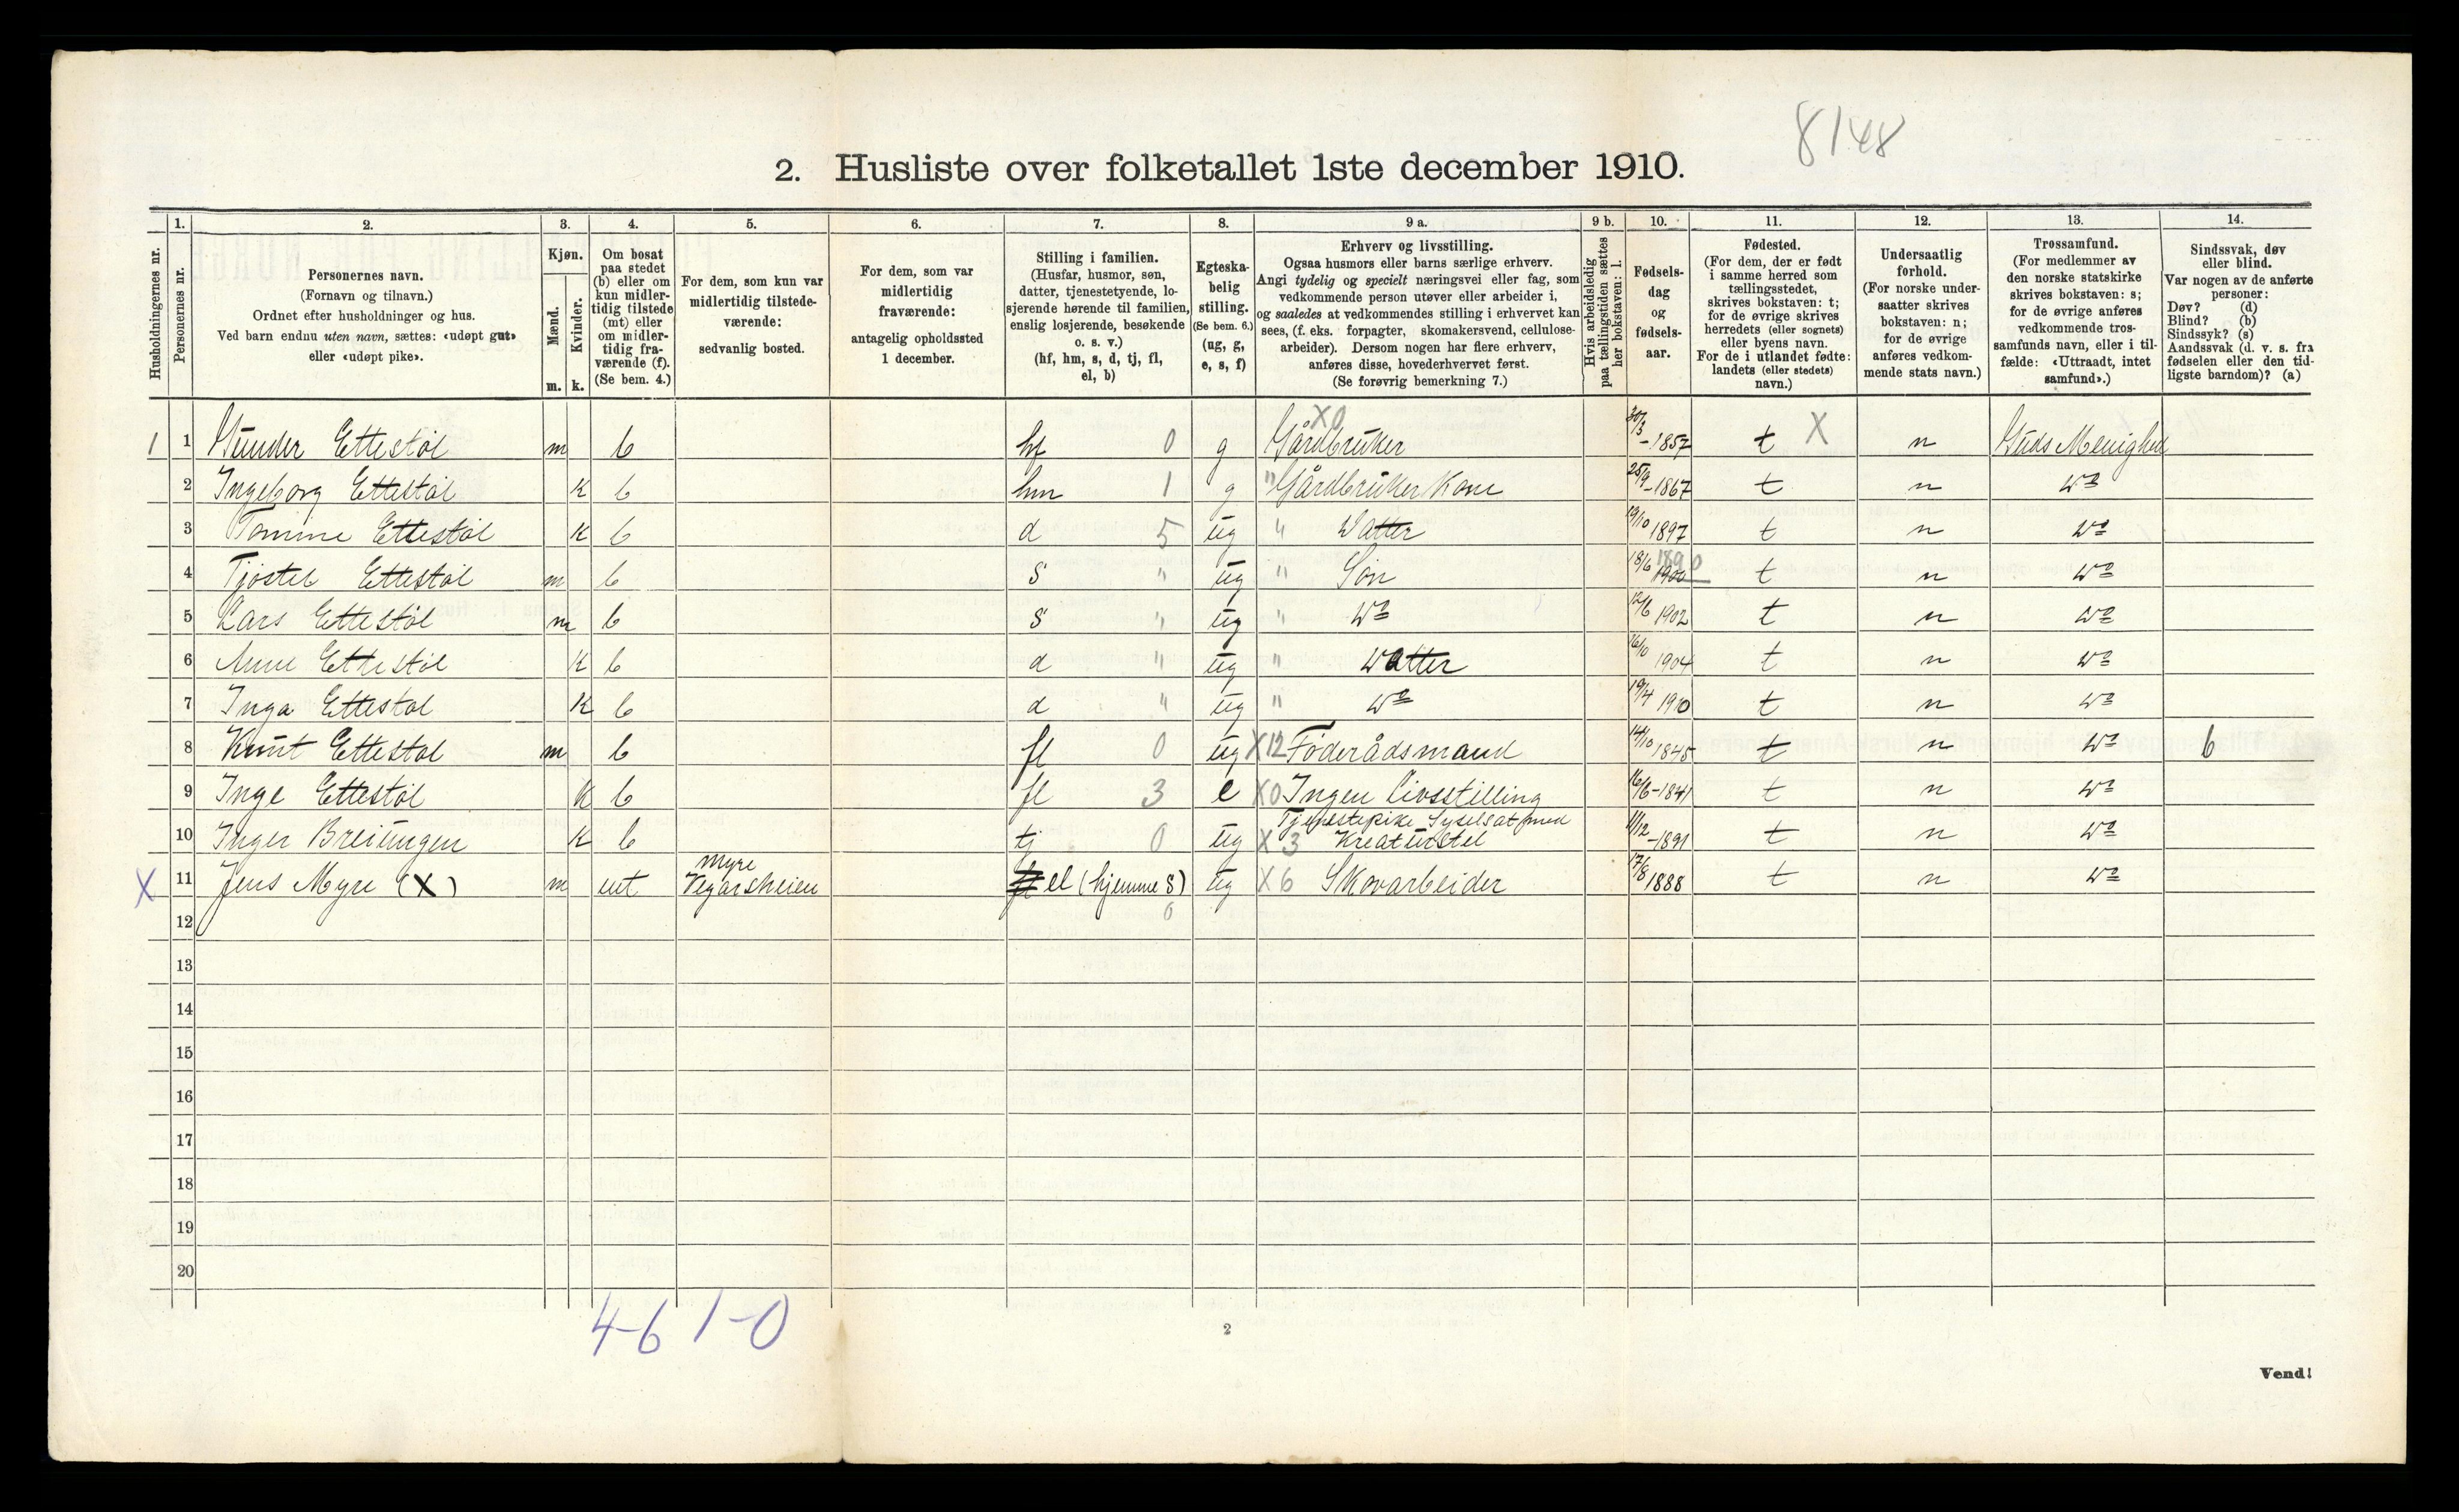 8148
2. Husliste over folketallet 1ste december 1910.
Husholdningernes nr.
1. Personernes nr.
2. Personernes navn. (Fornavn og tilnavn.) Ordnet efter husholdninger og hus. Ved barn endnu uten navn, sættes: «udøpt gut» eller «udøpt pike».
3. Kjøn. Mænd. m. Kvinder. k.
4. Om bosat paa stedet (b) eller om kun midlertidig tilstede (mt) eller om midlertidig fraværende (f). (Se bem. 4.)
5. For dem, som kun var midlertidig tilstedeværende: sedvanlig bosted.
6. For dem, som var midlertidig fraværende: antagelig opholdssted 1 december.
7. Stilling i familien. (Husfar, husmor, søn, datter, tjenestetyende, losjerende hørende til familien, enslig losjerende, besøkende o. s. v.) (hf, hm, s, d, tj, fl, el, b)
8. Egteskabelig stilling. (Se bem. 6.) (ug, g, e, s, f)
9 a. Erhverv og livsstilling. Ogsaa husmors eller barns særlige erhverv. Angi tydelig og specielt næringsvei eller fag, som vedkommende person utøver eller arbeider i, og saaledes at vedkommendes stilling i erhvervet kan sees, (f. eks. forpagter, skomakersvend, cellulosearbeider). Dersom nogen har flere erhverv, anføres disse, hovederhvervet først. (Se forøvrig bemerkning 7.)
9 b. Hvis arbeidsledig paa tællingstiden sættes her bokstaven: l.
10. Fødselsdag og fødselsaar.
11. Fødested. (For dem, der er født i samme herred som tællingsstedet, skrives bokstaven: t; for de øvrige skrives herredets (eller sognets) eller byens navn. For de i utlandet fødte: landets (eller stedets) navn.)
12. Undersaatlig forhold. (For norske undersaatter skrives bokstaven: n; for de øvrige anføres vedkommende stats navn.)
13. Trossamfund. (For medlemmer av den norske statskirke skrives bokstaven: s; for de øvrige anføres vedkommende trossamfunds navn, eller i tilfælde: «Uttraadt, intet samfund».)
14. Sindssvak, døv eller blind. Var nogen av de anførte personer: Døv? (d) Blind? (b) Sindssyk? (s) Aandssvak (d. v. s. fra fødselen eller den tidligste barndom)? (a)
1 1 Gunder Ettestøl m b hf 0 g X0 Gårdbruker 30/3-1857 t X n Guds Menighed
2 Ingeborg Ettestøl K b hm 1 g " Gårdbruker Kone 25/9-1867 t n do
3 Tomine Ettestøl K b d 5 ug " Datter 19/10 1897 t n do
4 Ettestøl m b s " ug " Søn 18/6 1900 1890 t n do
5 Lars Ettestøl m b s " ug " do 12/6 1902 t n do
6 Anne Ettestøl K b d " ug " Datter 16/10 1904 t n do
7 Inga Ettestøl K b d " ug " do 19/4 1910 t n do
8 Knut Ettestøl m b fl 0 ug X12 Føderådsmand 14/10 1845 t n do b
9 Inge Ettestøl K b fl 3 e X0 Ingen Livsstilling 16/6-1841 t n do
10 Inger Breiungen K b tj 0 ug X3 Tjenestepike Syselsat med Kreaturstel 11/12-1891 t n do
X 11 Jens Myre (X) m mt Myre Vegarsheien el (hjemme s) 0 ug X6 Skovarbeider 17/8 1888 t n do
12
13
14
15
16
17
18
19
20
4-6 1-0
2
Vend!